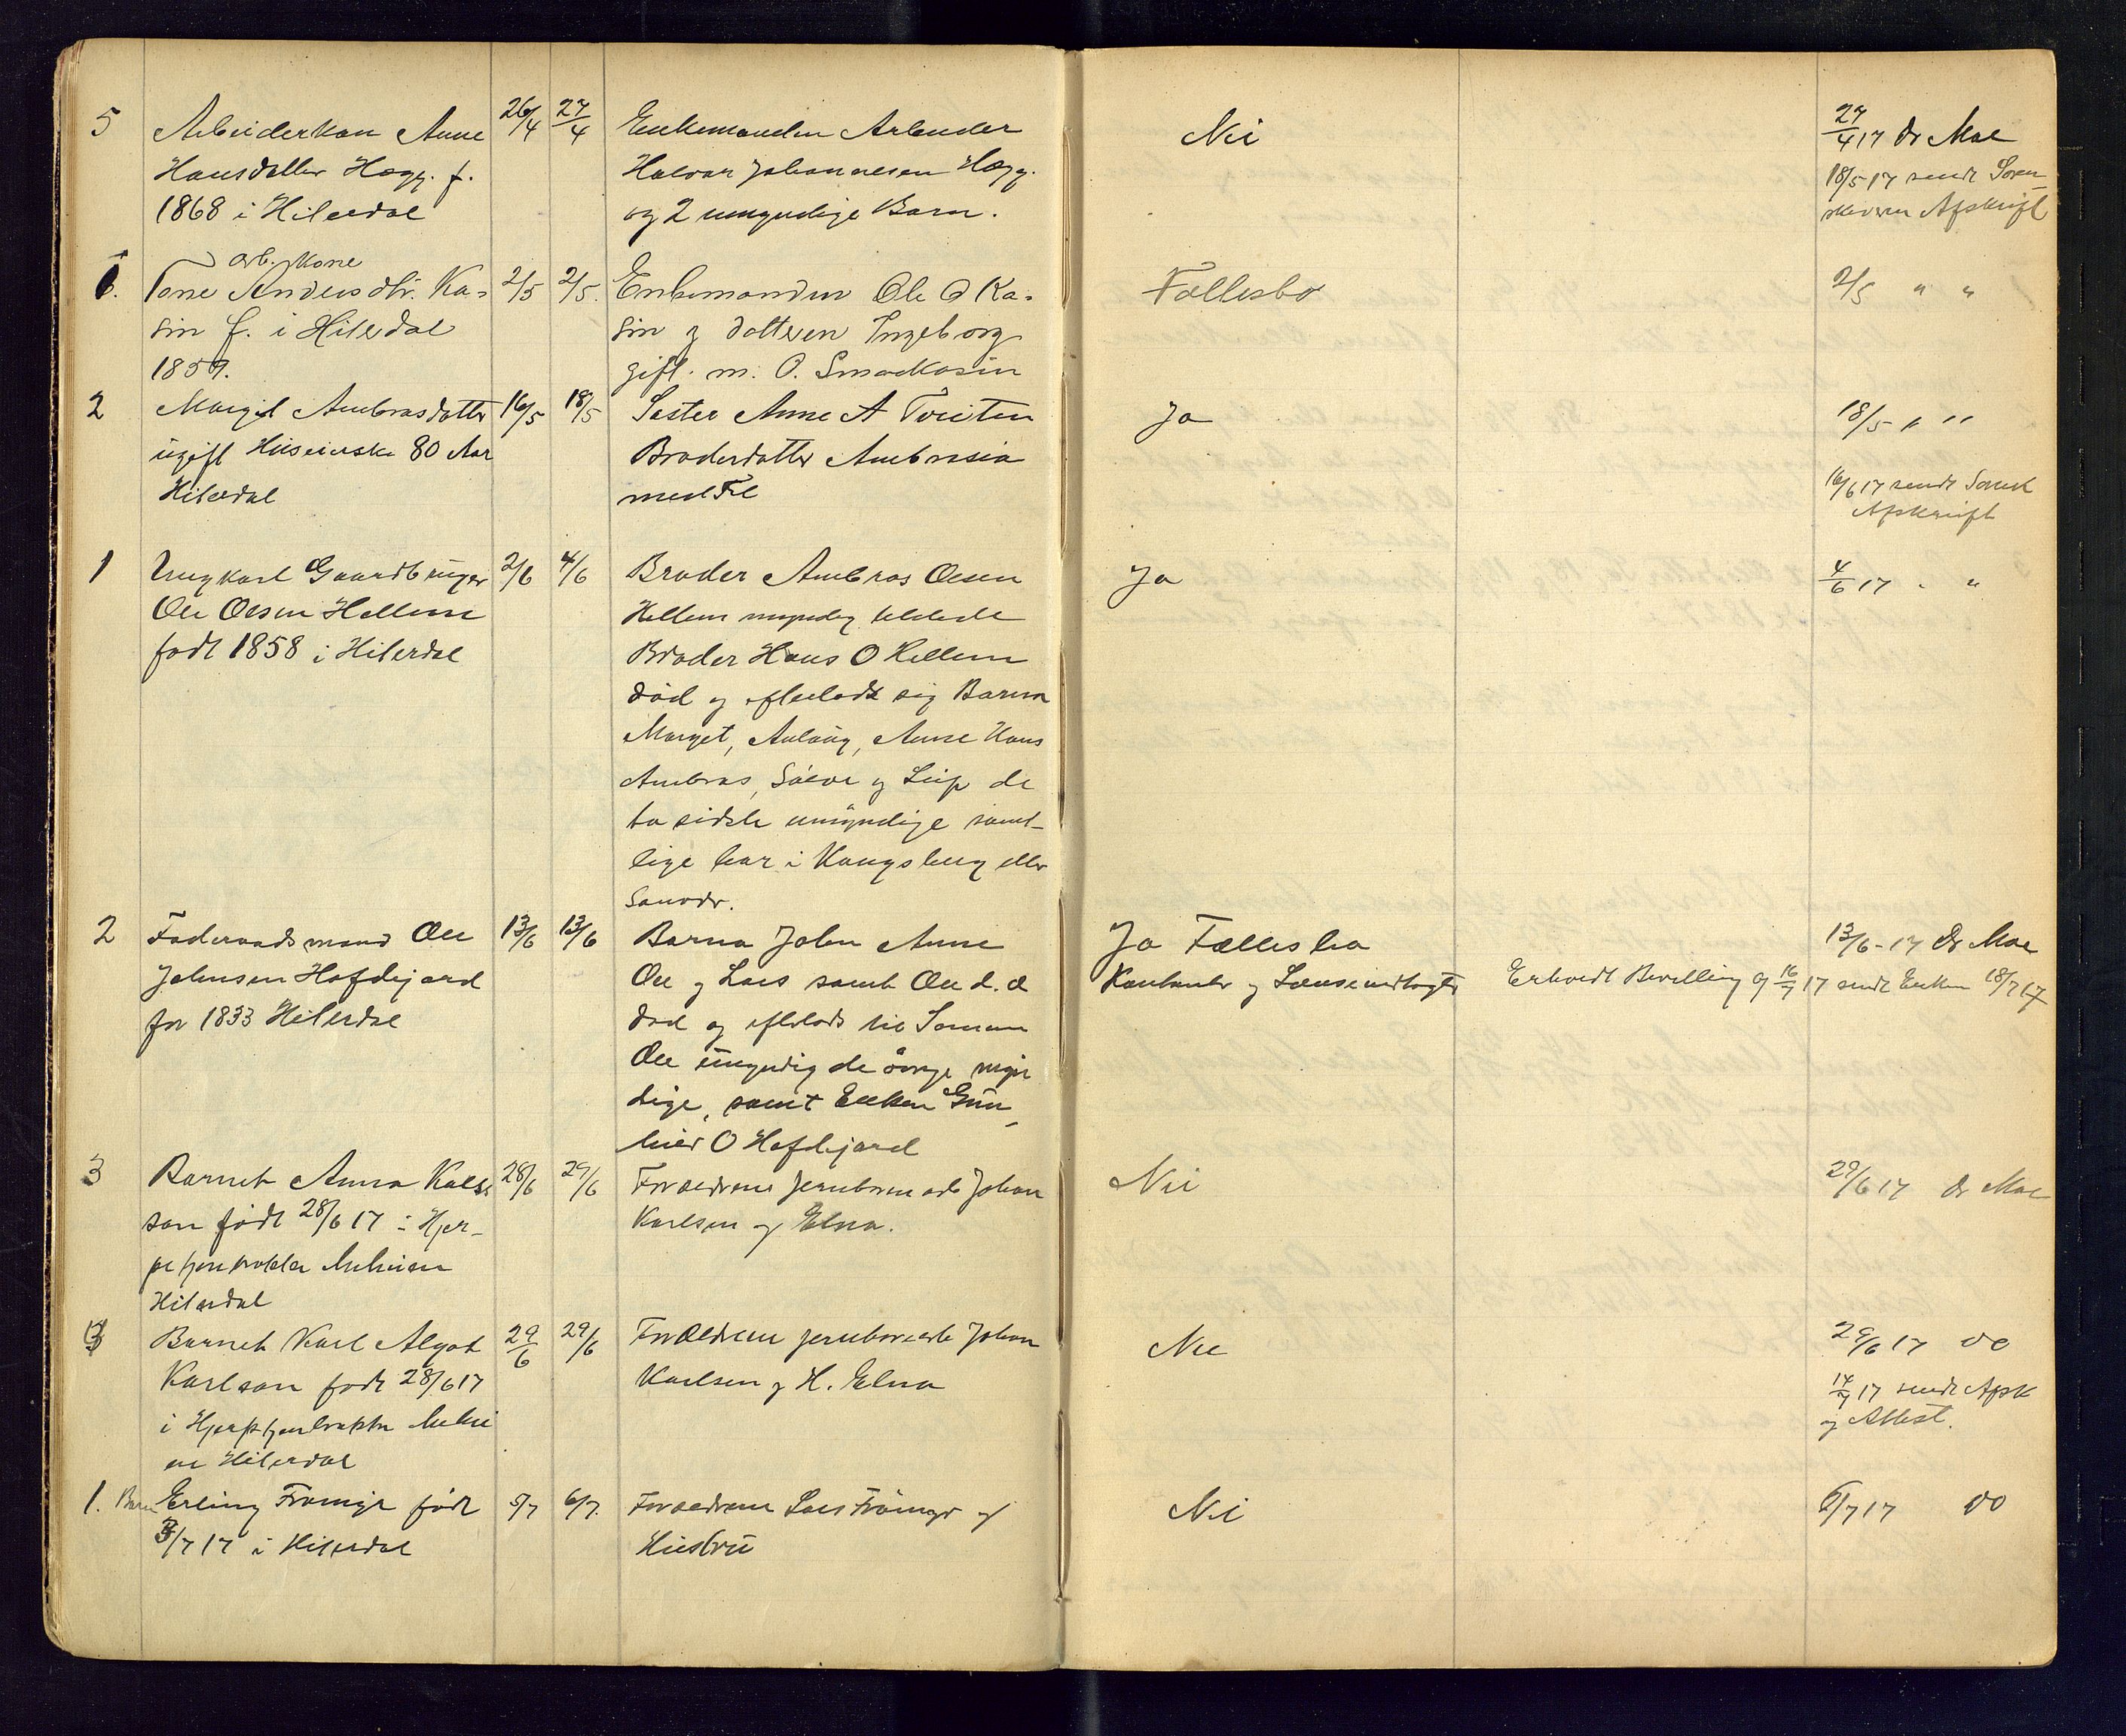 5 Arbeiderkon Anne 26/4 27/4 Enkemanden Arbeider Nei 27/4 17 Dr Moe
Hansdatter Hægg. f. Halvor Johannesen Hægg. 18/5 17 sendt Soren-
1868 i Hiterdal og 2 umyndige Barn. skriveren Afskrift
arb. kone
6. Tone Andersdtr. Ka- 2/5 2/5. Enkemanden Ole O Ka- Fællesbo 2/5 " "
sin f. i Hiterdal sin og datteren Ingeborg
1859. gift. m. O. Smedkasin
2 Margit Ambrosdatter 16/5 18/5 Søster Anne A Tveiten Ja 18/5 " "
ugift Huseierske 80 Aar Broderdatter Ambrosia
Hiterdal med Fl 16/6 17 sendt Sorensk
Afskrift
1 Ungkarl Gaardbruger 2/6 4/6 Broder Ambros Olsen Ja 4/6 17 " "
Ole Olsen Hellem Hellem myndig
født 1858 i Hiterdal Broder Hans O Hellem
død og efterladt sig Barna
Marget, Aslaug, Anne Hans
Ambros, Sølve og Leif de
to sidste umyndige samt-
lige bor i Kongsberg eller
Sandvær.
2 Foderaadsmand Ole 13/6 13/6 Barna John Anne Ja Fællesbo 13/6-17 Dr Moe
Johnsen Hafdejard Ole og Lars samt Ole d. æ Kontanter og Løseindtægter Erholdt Bevilling og 16/7 17 sendt Enken 18/7 17
før 1833 Hiterdal død og efterlods sie Sønnen
Ole umyndig de øvrige myn
dige, samt Enken Gun-
hild O Hafdejard
3 Barnet Anna Karls- 28/6 29/6 Foræeldrene jernbanearb Johan Nei 29/6 17 Dr Moe
son født 28/6 17 i Hjer- Karlsen og Elna.
Hiterdal
3 Barnet Karl Algot 29/6 29/6 Forældrene jernbanearb Johan Nei 29/6 17 do
Karlson født 28/6 17 Karlsen og H. Elna 14/7 17 sendt Afsk
i og Attest.
Hiterdal
1. Barn Erling Framnje født 5/7 6/7. Forældrene Lars Framnje og Nei 6/7 17 do
3/7 17 i Hiterdal Hustru